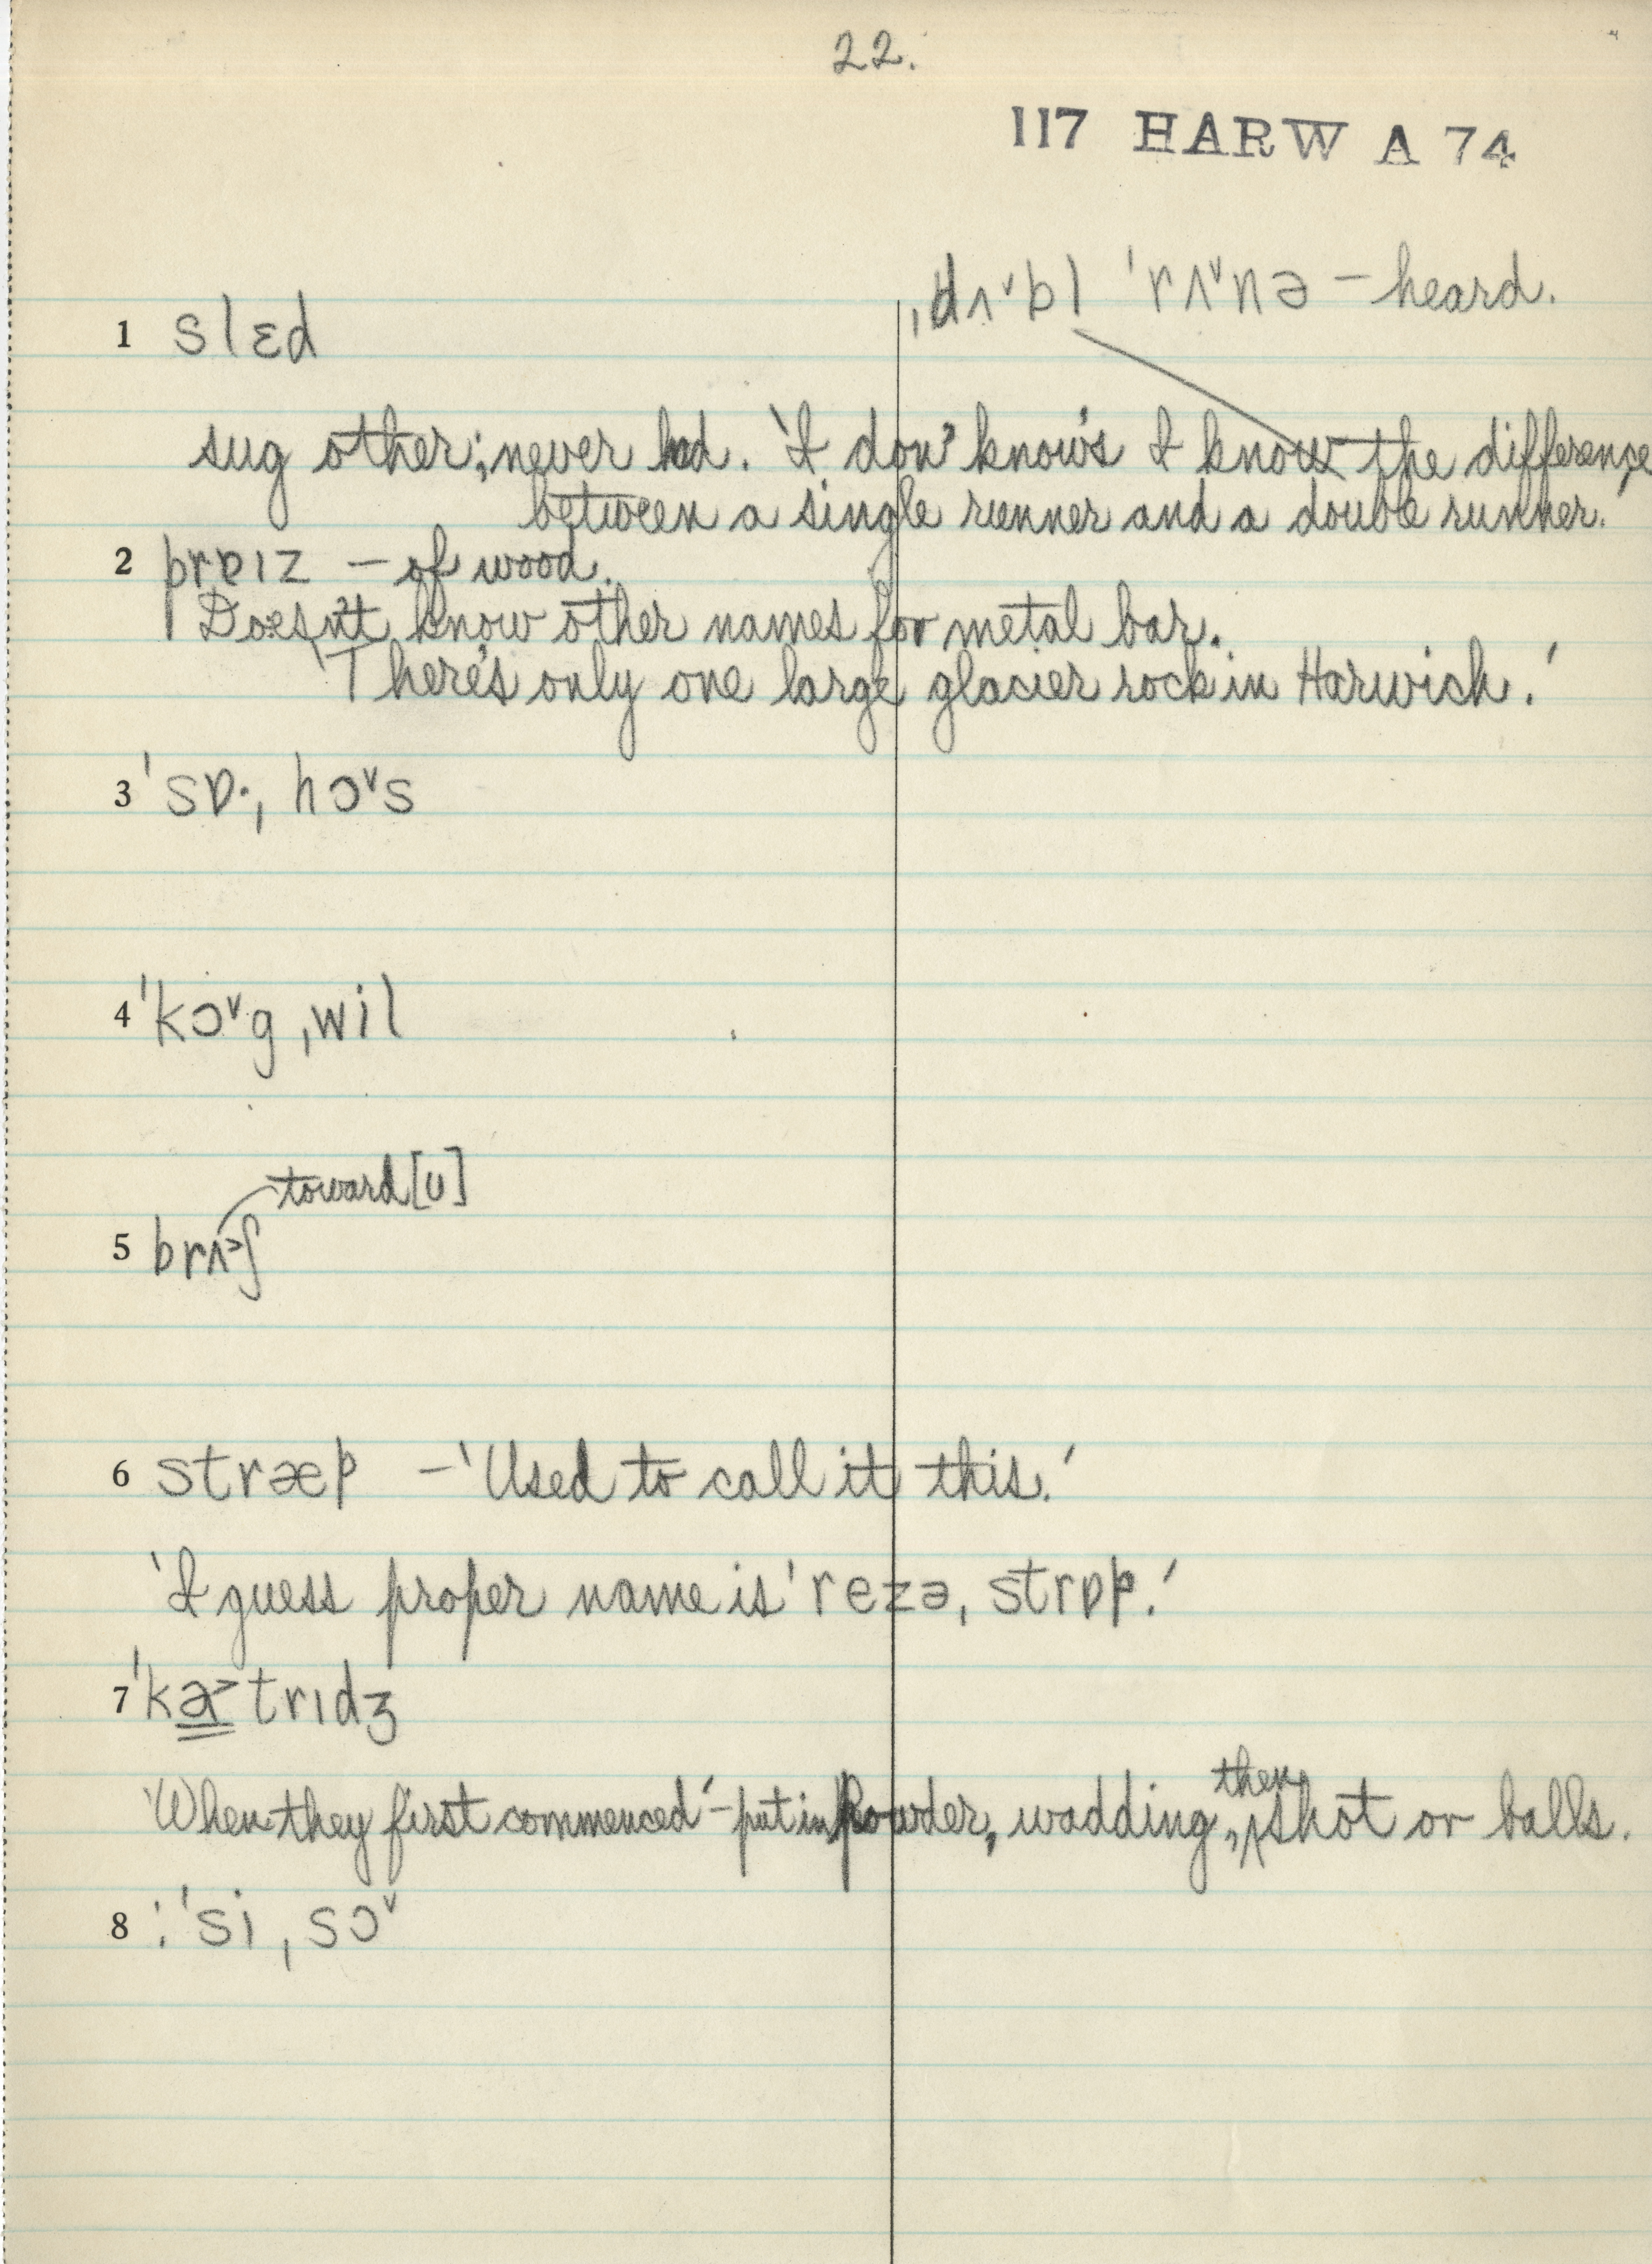 22.
117 HARW A 74
ˌdʌ˅bl ˈrʌ˅nə – heard.
1 slɛd
sug other; never had. 'I don' know's I know the difference
between a single runner and a double runner.'
2 prɐɪz – of wood.
Doesn't know other names for metal bar.
'There's only one large glacier rock in Harwich.'
3 ˈsɒ·ˌhɔ˅s
4 ˈkɔ˅gˌwil
toward [ʊ]
5 brʌ˃ʃ
6 stræp – 'Used to call it this.'
'I guess proper name is ˈrezəˌstrɒp.'
7 ˈka˃trɪdʒ
'When they first commenced' – put in powder, wadding, then shot or balls.
8 : ˈsiˌsɔ˅